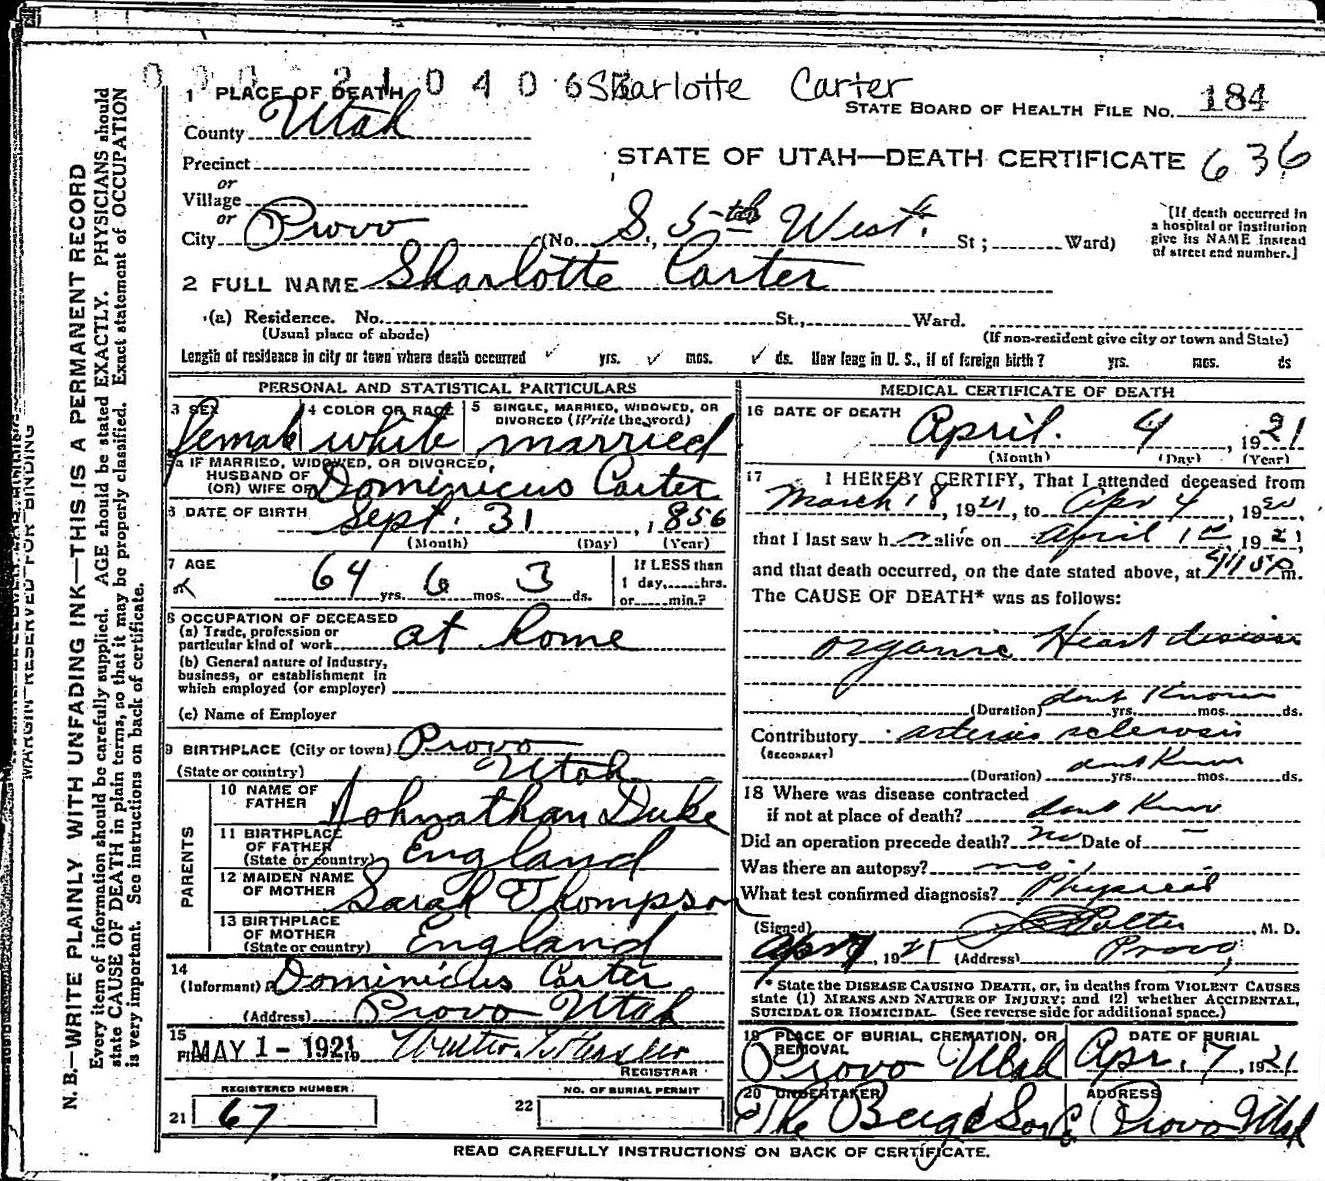 0 0 0 2 1 0 4 0 6 Sharlotte Carter
1 PLACE OF DEATH
STATE BOARD OF HEALTH FILE No. 184
County Utah
Precinct
STATE OF UTAH—DEATH CERTIFICATE 636
or
Village
or
City Provo (No. S. 5th West. St; Ward)
[If death occurred in a hospital or institution give its NAME instead of street and number.]
2 FULL NAME Sharlotte Carter
(a) Residence. No. St., Ward.
(Usual place of abode) (If non-resident give city or town and State)
Length of residence in city or town where death occurred ✓ yrs. ✓ mos. ✓ ds. How long in U. S., if of foreign birth? yrs. mos. ds
PERSONAL AND STATISTICAL PARTICULARS
3 SEX 4 COLOR OR RACE 5 SINGLE, MARRIED, WIDOWED, OR
DIVORCED (Write the word)
female white married
5a IF MARRIED, WIDOWED, OR DIVORCED,
HUSBAND OF
(OR) WIFE OF Dominicus Carter
6 DATE OF BIRTH Sept. 31, 1856
(Month) (Day) (Year)
7 AGE 64 yrs. 6 mos. 3 ds.
If LESS than
1 day,......hrs.
or......min.?
8 OCCUPATION OF DECEASED
(a) Trade, profession or
particular kind of work at home
(b) General nature of industry,
business, or establishment in
which employed (or employer)
(c) Name of Employer
9 BIRTHPLACE (City or town) Provo
(State or country) Utah
PARENTS
10 NAME OF
FATHER Johnathan Duke
11 BIRTHPLACE
OF FATHER
(State or country) England
12 MAIDEN NAME
OF MOTHER Sarah Thompson
13 BIRTHPLACE
OF MOTHER
(State or country) England
14
(Informant) Dominicus Carter
(Address) Provo Utah
15
FILED MAY 1 - 1921
REGISTRAR
REGISTERED NUMBER NO. OF BURIAL PERMIT
21 67 22
MEDICAL CERTIFICATE OF DEATH
16 DATE OF DEATH April. 4, 1921
(Month) (Day) (Year)
17 I HEREBY CERTIFY, That I attended deceased from
March 18, 1921, to Apr 4, 19
that I last saw h alive on April 1st 1921,
and that death occurred, on the date stated above, at 4 11 5 P m.
The CAUSE OF DEATH* was as follows:
organic Heart disease
dont Know
(Duration) yrs. mos. ds.
Contributory arterio sclerosis
(SECONDARY) dont Know
(Duration) yrs. mos. ds.
18 Where was disease contracted
if not at place of death? dont Know
Did an operation precede death? no Date of —
Was there an autopsy? no
What test confirmed diagnosis? Physical
(Signed) M. D.
Apr 1921 (Address) Provo,
* State the DISEASE CAUSING DEATH, or, in deaths from VIOLENT CAUSES
state (1) MEANS AND NATURE OF INJURY; and (2) whether ACCIDENTAL,
SUICIDAL OR HOMICIDAL. (See reverse side for additional space.)
19 PLACE OF BURIAL, CREMATION, OR
REMOVAL
Provo Utah
DATE OF BURIAL
Apr. 7, 1921
20 UNDERTAKER
The Berg & Sons Co
ADDRESS
Provo Utah
READ CAREFULLY INSTRUCTIONS ON BACK OF CERTIFICATE.
MARGIN RESERVED FOR BINDING
N. B.—WRITE PLAINLY WITH UNFADING INK—THIS IS A PERMANENT RECORD
Every item of information should be carefully supplied. AGE should be stated EXACTLY. PHYSICIANS should
state CAUSE OF DEATH in plain terms, so that it may be properly classified. Exact statement of OCCUPATION
is very important. See instructions on back of certificate.